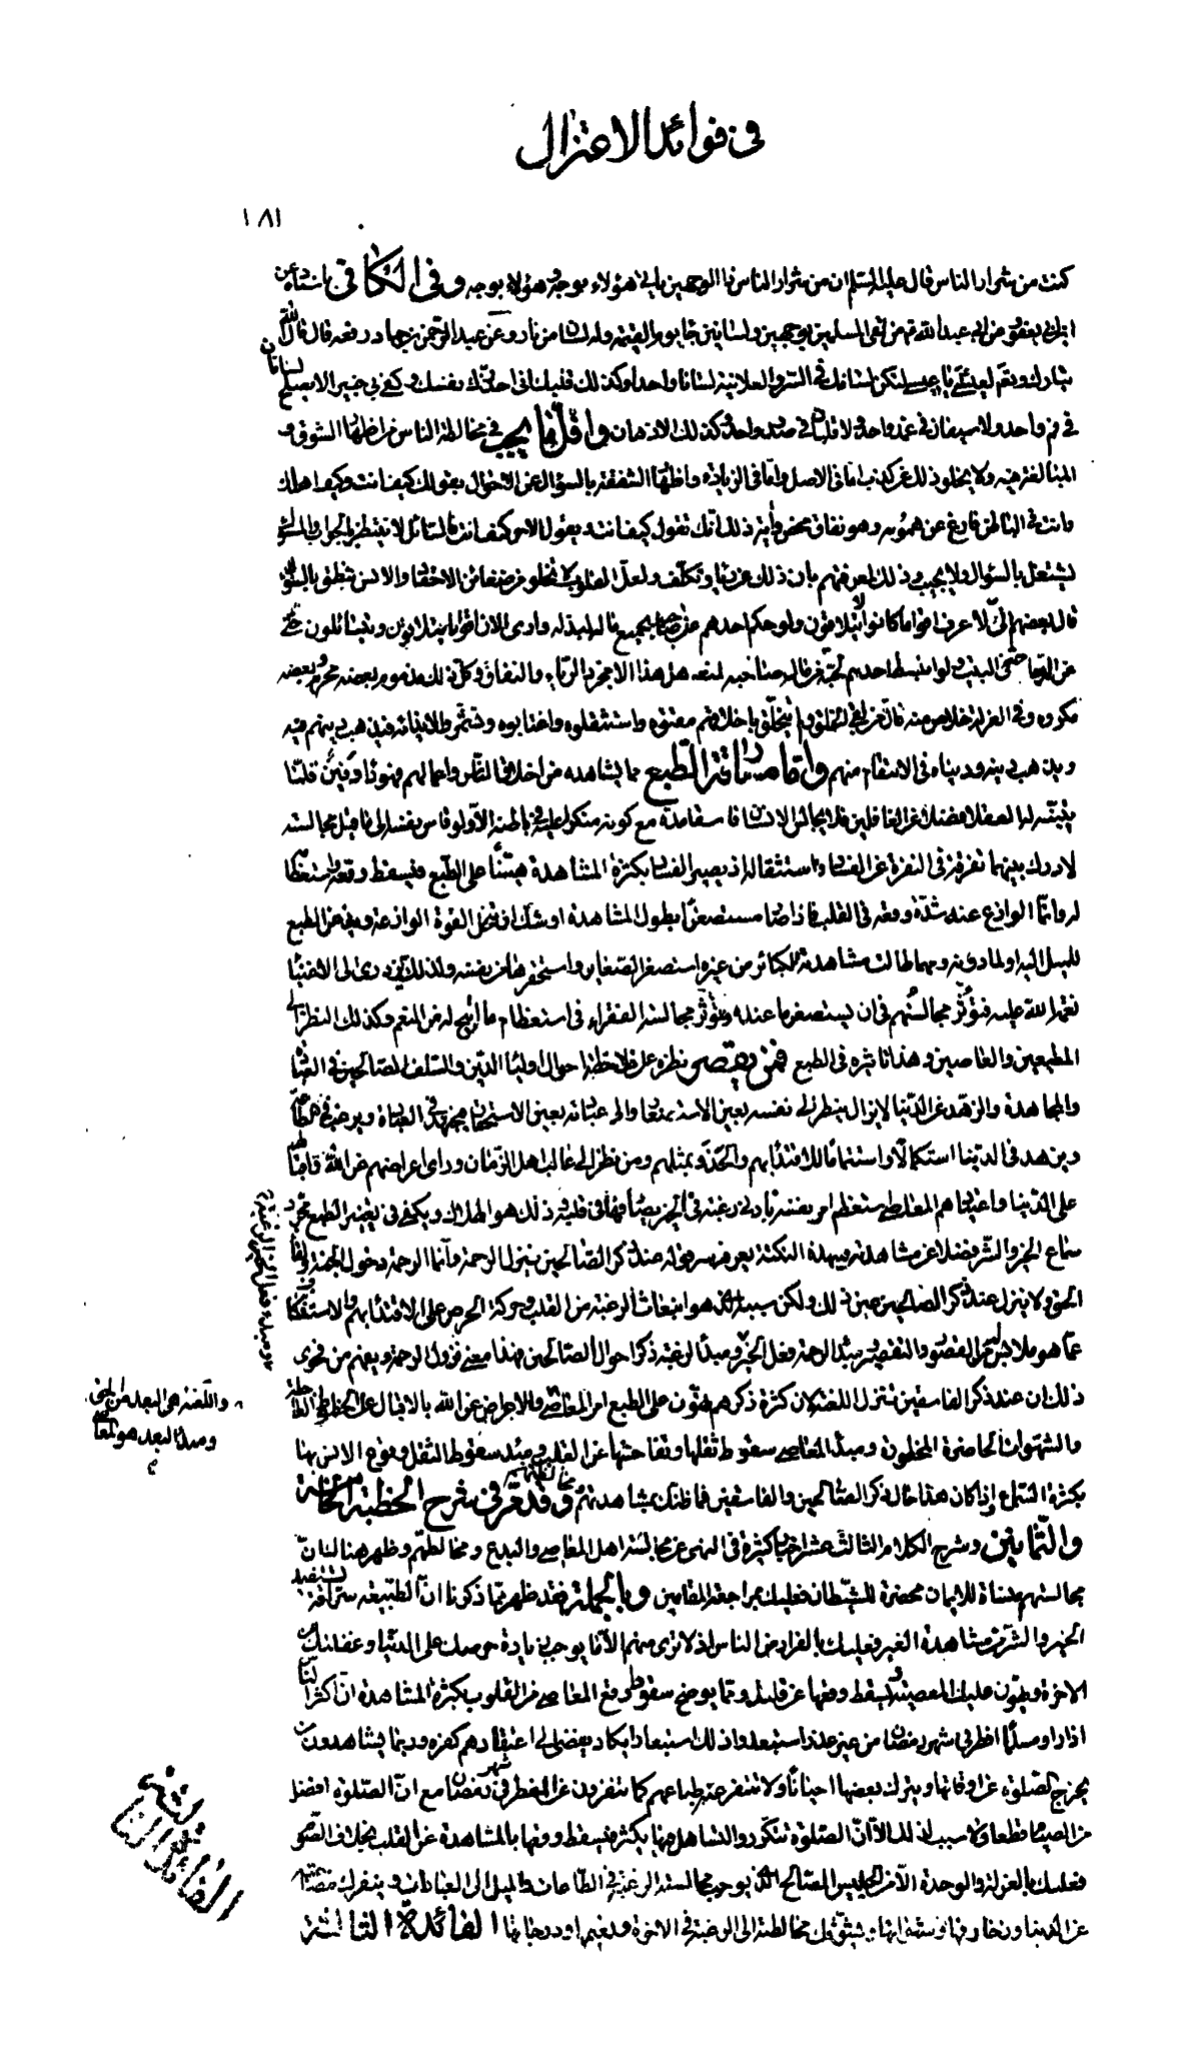 في فوائد الاعتزال
١٨١
كنت من شرار الناس قال عليه السلام ان من شرار الناس ذا الوجهين ياتي هؤلاء بوجه وهؤلاء بوجه وفي الكافي باسناده عن
ابن ابي يعفور عن ابي عبد الله قال من لقى المسلمين بوجهين ولسانين جاء يوم القيمة وله لسانان من نار وعن عبد الرحمن بن حماد رفعه قال قال الله
تبارك وتعالى لعيسى يا عيسى ليكن لسانك في السر والعلانية لسانا واحدا وكذلك قلبك انى احذرك نفسك وكفى بي خبيرا لا يصلح لسانان
في فم واحد ولا سيفان في غمد واحد ولا قلبان في صدر واحد وكذلك الاذهان واقل ما يجب في مخالطة الناس اظهار الشوق و
المبالغة فيه ولا يخلو ذلك عن كذب اما في الاصل واما في الزيادة واظهار الشفقة بالسؤال عن الاحوال بقولك كيف انت وكيف اهلك
وانت في الباطن فارغ عن همومه وهو نفاق محض وآية ذلك انك تقول كيف انت ويقول الاخر كيف انت فالسائل لا ينتظر الجواب والمسئول
يشتغل بالسؤال ولا يجيب وذلك لمعرفتهم بان ذلك عن رياء وتكلف ولعل القلوب لا تخلو عن ضغائن الاحقاد والالسن تنطق بالسؤال
قال بعضهم انى لا اعرف اقواما كانوا لا يتلاقون ولو حكم احدهم على صاحبه بجميع ما يملكه لبذله وارى الان اقواما يتلاقون ويتسائلون حتى
عن الدجاجة في البيت ولو انبسط احدهم لحبة من مال صاحبه لمنعه هل هذا الا مجرد الرياء والنفاق وكل ذلك مذموم بعضه محرم وبعضه
مكروه وفي العزلة خلاص منه فان من لقى الخلق ولم يتخلق باخلاقهم مقتوه واستثقلوه واغتابوه وتشمروا لايذائه فيذهب دينهم فيه
ويذهب دينه ودنياه في الانتقام منهم واما مسارقة الطبع مما يشاهده من اخلاق الناس واعمالهم فهو داء دفين قلما
يتنبه له العقلاء فضلا عن الغافلين فلا يجالس الانسان فاسقا مدة مع كونه منكرا عليه في باطنه الا ولو قاس نفسه الى ما قبل مجالسته
لادرك بينهما تفرقة في النفرة عن الفساد واستثقاله اذ يصير الفساد بكثرة المشاهدة هينا على الطبع فيسقط وقعه واستعظامه
له وانما الوازع عنه شدة وقعه في القلب فاذا صار مستصغرا بطول المشاهدة اوشك ان تنحل القوة الوازعة ويذعن الطبع
للميل اليه او لما دونه ومهما طالت مشاهدته للكبائر من غيره استصغر الصغاير واستحقرها من نفسه ولذلك يزدرى الى الاغنياء
نعمة الله عليه فتؤثر مجالستهم في ان يستصغر ما عنده ويؤثر مجالسة الفقراء في استعظام ما اتيح له من النعم وكذلك النظر الى
المطيعين والعاصين وهذا تاثيره في الطبع فمن يقتصر نظره على ملاحظة احوال اولياء الدين والسلف الصالحين في العبادة
والمجاهدة والزهد عن الدنيا لا يزال ينظر الى نفسه بعين الاستصغار والى عبادته بعين الاستحقار فيجتهد في العبادة ويرغب في الطاعة
ويزهد في الدنيا استكمالا واستتماما للاقتداء بهم والحذو بمثلهم ومن نظر الى غالب اهل الزمان وراى اعراضهم عن الله واقبالهم
على الدنيا واعتيادهم المعاصى استعظم امر نفسه بادنى رغبة في الخير يصادفها في قلبه وذلك هو الهلاك ويكفى في تغيير الطبع مجرد
سماع الخير والشر فضلا عن مشاهدته وبهذه النكتة يعرف سر قوله عند ذكر الصالحين تنزل الرحمة وانما الرحمة دخول الجنة ولقاء
الحق ولا ينزل عند ذكر الصالحين عين ذلك ولكن سببه الذى هو انبعاث الرغبة من القلب وحركة الحرص على الاقتداء بهم والاستنكاف
عما هو ملابس له من القصور والتقصير ومبدأ الرحمة فعل الخير ومبدأ الرغبة ذكر احوال الصالحين فهذا معنى نزول الرحمة ويفهم من فحوى
ذلك ان عند ذكر الفاسقين تنزل اللعنة لان كثرة ذكرهم تهون على الطبع امر المعاصى والاعراض عن الله بالاقبال على الحظوظ العاجلة
والشهوات الحاضرة المخلون ومبدأ المعاصى سقوط ثقلها وتفاحشها عن القلب ومبدء سقوط الثقل وقوع الانس بها
بكثرة السماع واذا كان هذا حال ذكر الصالحين والفاسقين فما ظنك بمشاهدتهم ومخالطتهم وقد مر في شرح الخطبة الخامسة
والثمانين وشرح الكلام الثالث عشر اخبار كثيرة في النهى عن مجالسة اهل المعاصى والبدع ومخالطتهم وظهر هنالك ان
مجالستهم منساة للايمان محضرة للشيطان فعليك بمراجعة المقامين وبالجملة فقد ظهر مما ذكرنا ان الطبيعة سراقة تستفيد
الخير والشر من مشاهدة الغير فعليك بالفرار من الناس اذ لا ترى منهم الا ما يوجب زيادة حرصك على الدنيا وغفلتك عن
الاخرة ويهون عليك المعصية ويسقط وقعها عن قلبك ومما يوضح سقوط وقع المعاصى من القلوب بكثرة المشاهدة ان اكثر الناس
اذا راوا مسلما افطر في شهر رمضان من غير علة استبعدوا ذلك استبعادا يكاد يفضى الى اعتقادهم كفره وربما يشاهدون من
يخرج الصلوة عن اوقاتها ويترك بعضها احيانا ولا تتنفر عنه طباعهم كما تتنفرون عن المفطر في شهر رمضان مع ان الصلوة افضل
من الصيام قطعا ولا سبب لذلك الا ان الصلوة تتكرر والتساهل فيها يكثر فيسقط وقعها بالمشاهدة عن القلب بخلاف الصوم
فعليك بالعزلة والوحدة الا من الجليس الصالح الذى يوجب مجالسته الرغبة في الطاعات والميل الى العبادات وينفرك
عن الدنيا وزخارفها وشهواتها ويشوقك مخالطته الى الرغبة في الاخرة ونعيمها ودرجاتها الفائدة الثالثة
واللعنة هى البعد من الحق
ومبدأ البعد هو المعاصى
الفائدة الثالثة